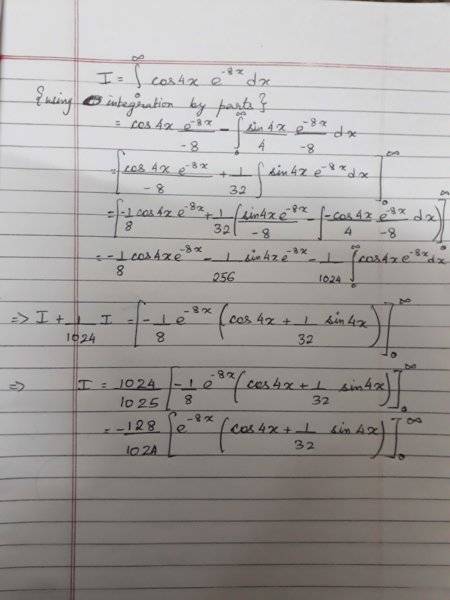 I = ∫₀^∞ cos4x e^{-8x} dx
{using integration by parts}
= cos4x e^{-8x}/-8 - ∫₀^∞ sin4x/4 e^{-8x}/-8 dx
= [cos4x e^{-8x}/-8 + 1/32 ∫ sin4x e^{-8x} dx]₀^∞
= [-1/8 cos4x e^{-8x} + 1/32 (sin4x e^{-8x}/-8 - ∫ -cos4x/4 e^{-8x}/-8 dx)]₀^∞
= -1/8 cos4x e^{-8x} - 1/256 sin4x e^{-8x} - 1/1024 ∫₀^∞ cos4x e^{-8x} dx
=> I + 1/1024 I = [-1/8 e^{-8x} (cos4x + 1/32 sin4x)]₀^∞
=> I = 1024/1025 [-1/8 e^{-8x} (cos4x + 1/32 sin4x)]₀^∞
= -128/1024 [e^{-8x} (cos4x + 1/32 sin4x)]₀^∞